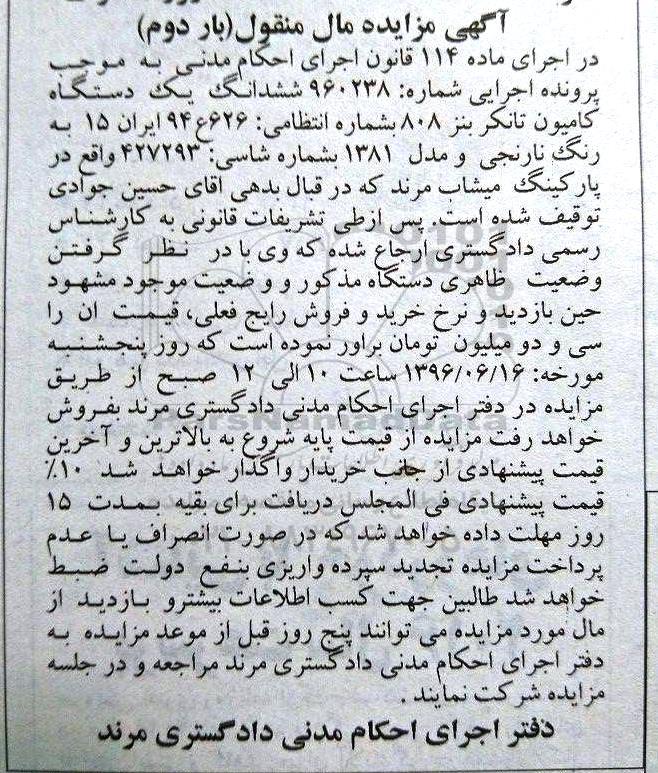 آگهی مزایده مال منقول(بار دوم)
در اجرای ماده ۱۱۴ قانون اجرای احکام مدنی به موجب
پرونده اجرایی شماره: ۹۶۰۲۳۸ ششدانگ یک دستگاه
کامیون تانکر بنز ۸۰۸ بشماره انتظامی: ۶۲۶ع۹۴ ایران ۱۵ به
رنگ نارنجی و مدل ۱۳۸۱ بشماره شاسی: ۴۲۷۲۹۳ واقع در
پارکینگ میشاب مرند که در قبال بدهی اقای حسین جوادی
توقیف شده است. پس ازطی تشریفات قانونی به کارشناس
رسمی دادگستری ارجاع شده که وی با در نظر گرفتن
وضعیت ظاهری دستگاه مذکور و و ضعیت موجود مشهود
حین بازدید و نرخ خرید و فروش رایج فعلی، قیمت ان را
سی و دو میلیون تومان براور نموده است که روز پنجشنبه
مورخه: ۱۳۹۶/۰۶/۱۶ ساعت ۱۰ الی ۱۲ صبح از طریق
مزایده در دفتر اجرای احکام مدنی دادگستری مرند بفروش
خواهد رفت مزایده از قیمت پایه شروع به بالاترین و آخرین
قیمت پیشنهادی از جانب خریدار واگذار خواهد شد ۱۰٪
قیمت پیشنهادی فی المجلس دریافت برای بقیه بمدت ۱۵
روز مهلت داده خواهد شد که در صورت انصراف یا عدم
پرداخت مزایده تجدید سپرده واریزی بنفع دولت ضبط
خواهد شد طالبین جهت کسب اطلاعات بیشترو بازدید از
مال مورد مزایده می توانند پنج روز قبل از موعد مزایده به
دفتر اجرای احکام مدنی دادگستری مرند مراجعه و در جلسه
مزایده شرکت نمایند .
دفتر اجرای احکام مدنی دادگستری مرند
ParsNamadData